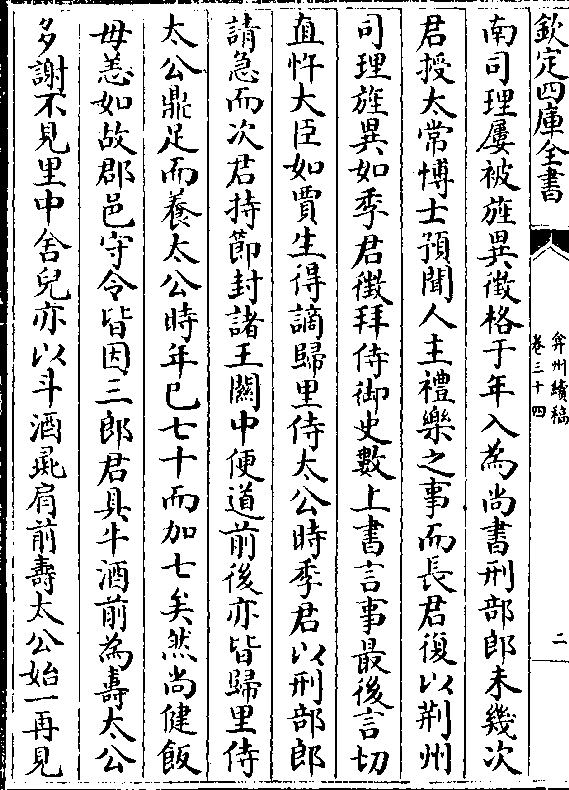 欽定四庫全書
弇州續稿
卷三十四
二
南司理屢被旌異徵格于年入為尚書刑部郎未幾次
君授太常博士預聞人主禮樂之事而長君復以荆州
司理旌異如季君徵拜侍御史數上書言事最後言切
直忤大臣如賈生得謫歸里侍太公時季君以刑部郎
請急而次君持節封諸王關中便道前後亦皆歸里侍
太公鼎足而養太公時年已七十而加七矣然尚健飯
毋恙如故郡邑守令皆因三郎君具牛酒前為壽太公
多謝不見里中舍兒亦以斗酒彘肩前壽太公始一再見